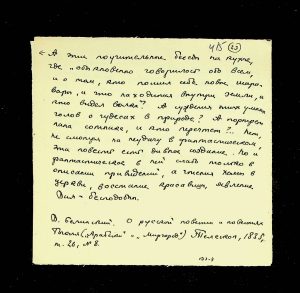 ЧВ (23)
"А эти поучительные беседы на кухне,
где "обыкновенно говорилось обо всем,
и о том, кто пошил себе новые шаро-
вары, и что находится внутри земли, и
кто видел волка? А суждения этих умных
голов о чудесах в природе? А портрет
Нет,
не смотря на неудачу в фантастическом,
эта повесть есть дивное создание. Но и
фантастическое в ней слабо только в
описании привидений, а чтения Хомы в
церкви, восстание красавицы, явление
Вия – бесподобны.
В. Белинский. О русской повести и повестях
Гоголя ("Арабески" и "Миргород"). Телескоп, 1835,
т. 26, № 8.